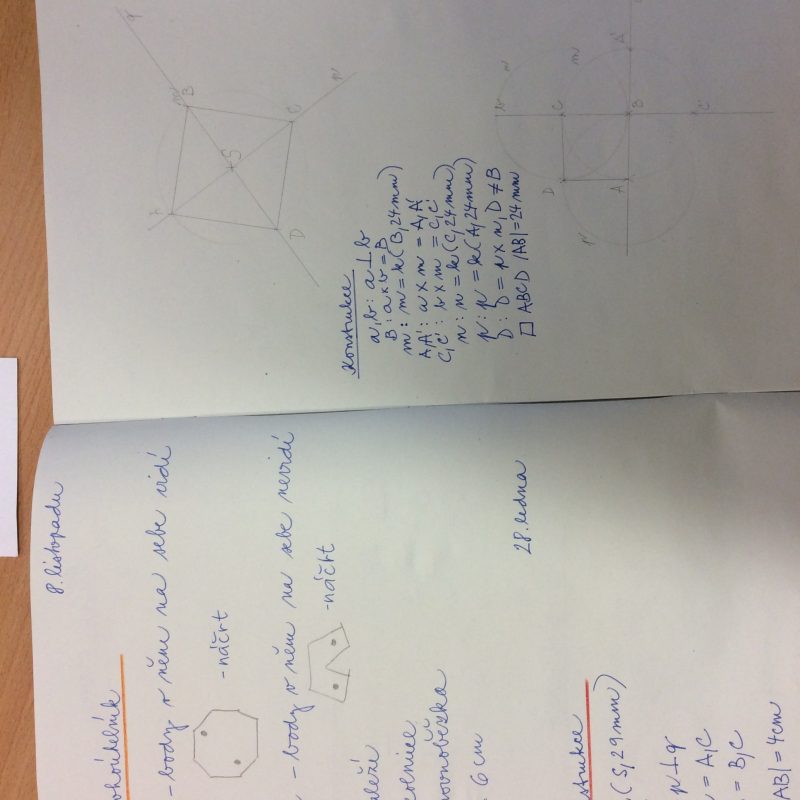 8. listopadu
ohoúhelník
- body v něm na sebe vidí
- náčrt
- body v něm na sebe nevidí
- náčrt
kolmice
rovnoběžka
= 6 cm
28. ledna
strukce
(S, 29 mm)
p ⊥ q
= A, C
= B, C
AB| = 4cm
q
B
A
S
C
D
p
Konstrukce
a, b : a ⊥ b
B : a x b = B
m : m = k(B, 24 mm)
A, A' : a x m = A, A'
C, C' : b x m = C, C'
n : n = k(C, 24 mm)
p : p = k(A, 24 mm)
D : D = p x n, D ≠ B
□ ABCD |AB| = 24 mm
n
m
A'
b
C
B
C'
D
A
p